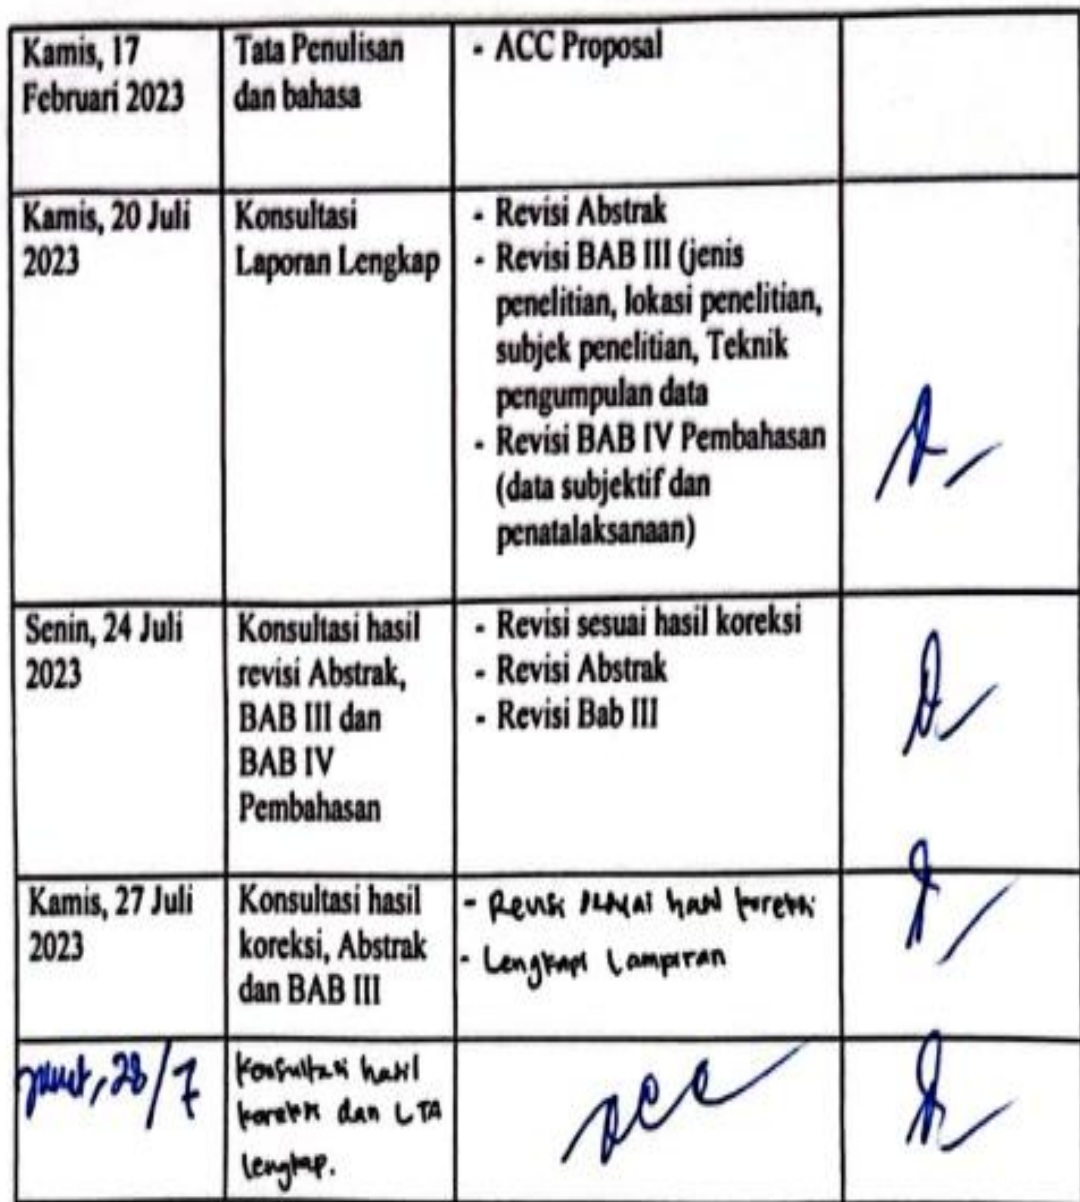 Kamis, 17
Februari 2023
Tata Penulisan
dan bahasa
- ACC Proposal
Kamis, 20 Juli
2023
Konsultasi
Laporan Lengkap
- Revisi Abstrak
- Revisi BAB III (jenis
penelitian, lokasi penelitian,
subjek penelitian, Teknik
pengumpulan data
- Revisi BAB IV Pembahasan
(data subjektif dan
penatalaksanaan)
Senin, 24 Juli
2023
Konsultasi hasil
revisi Abstrak,
BAB III dan
BAB IV
Pembahasan
- Revisi sesuai hasil koreksi
- Revisi Abstrak
- Revisi Bab III
Kamis, 27 Juli
2023
Konsultasi hasil
koreksi, Abstrak
dan BAB III
- Revisi sesuai hasil koreksi
- Lengkapi Lampiran
28/7
Konsultasi hasil
koreksi dan LTA
lengkap.
acc